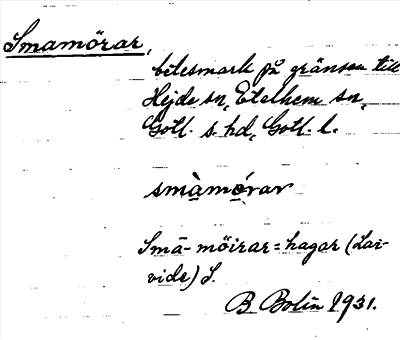 Smamörar,
betesmark på gränsen till
Hejde sn, Etelhem sn,
Gotl. s. hd, Gotl. l.
smàmo̱rar
Smā-möirar = hagar (Lar-
vide) S.
B Bolin 1931.